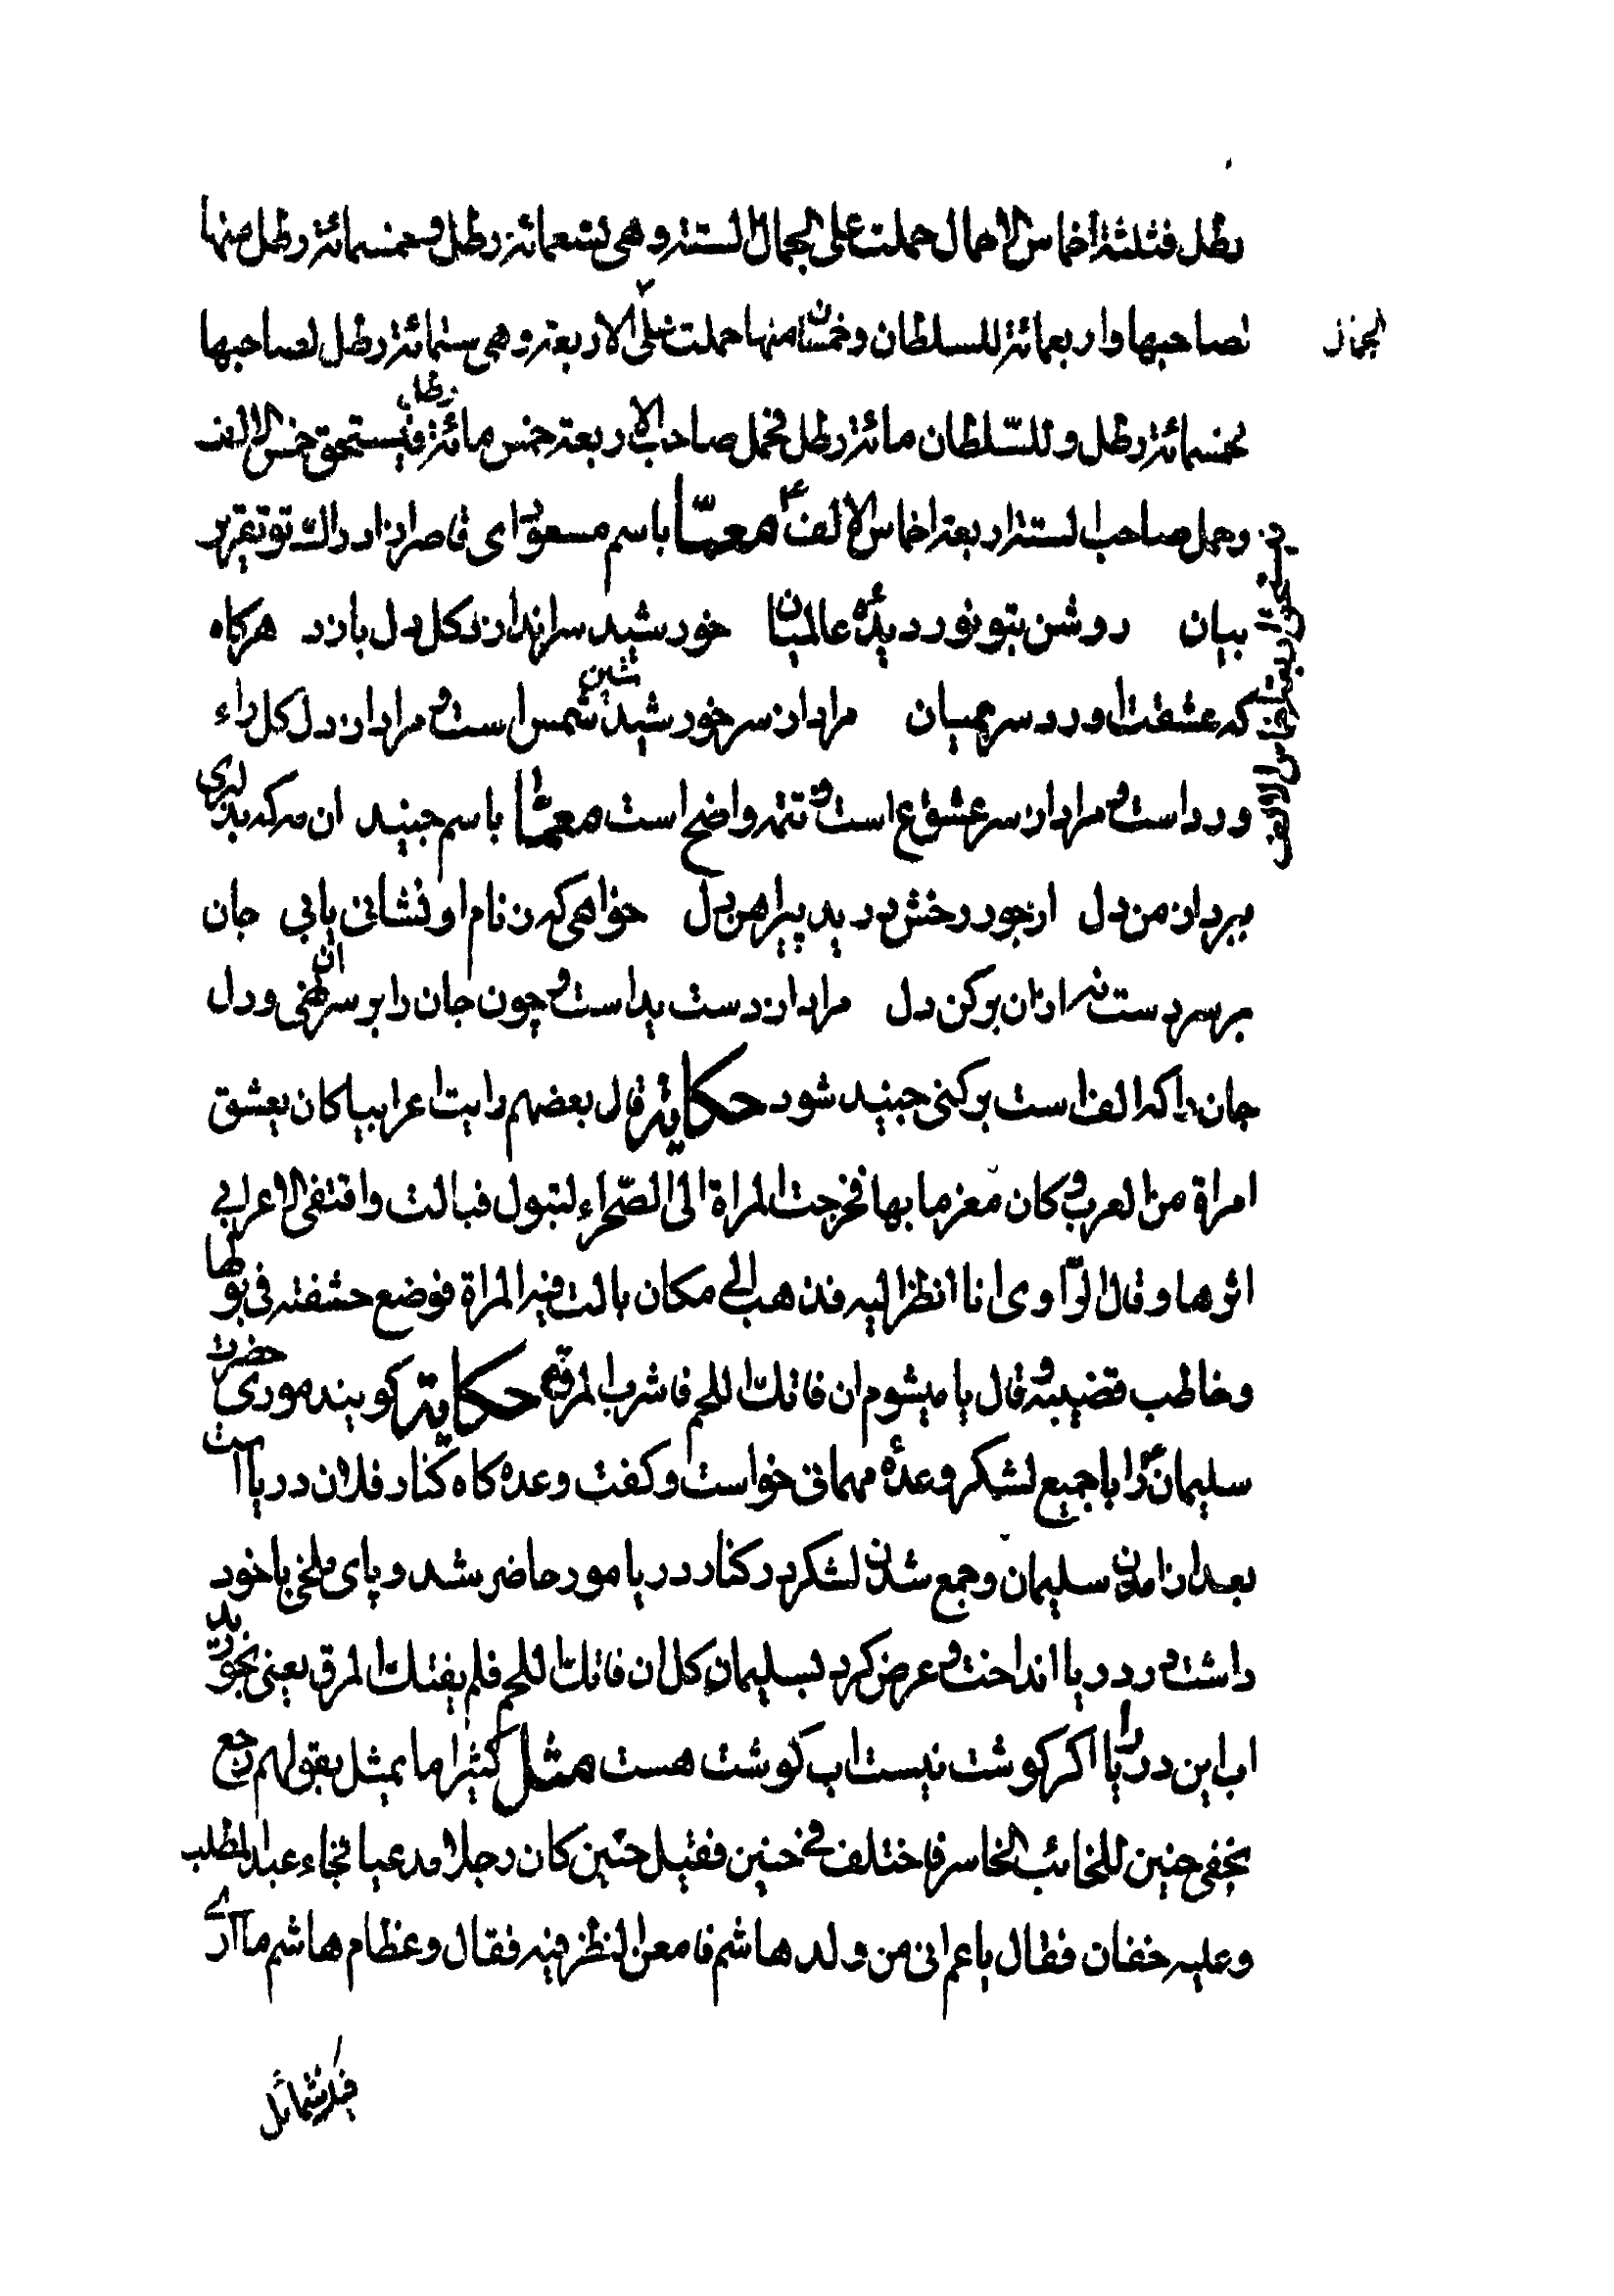 رطل فثلثة اخماس الاحمال حملت على الجمال الستة وهى تسعمائة رطل وخمسمائة رطل منها
لصاحبها واربعمائة للسلطان وخمسان منها حملت على الاربعة وهى ستمائة رطل لصاحبها
الجمال
خمسمائة رطل وللسّلطان مائة رطل فحمل صاحب الاربعة خمس مائة رطل فيستحق خمس الالف
وحمل صاحب الستة اربعة اخماس الالف معمّا باسم مسعود ای قاصر از ادراك تو تقریر
بیان روشن بتو نور دیدهٔ عالمیان خورشید سرانداز و کل دل بازد هرکاه
که عشقت اورد سر بمیان مراد از سر خورشید شین شمس است و مراد از دل کل راء
ورد است و مراد از سر عشق ع است و تتمه واضح است معمّا باسم جنید ان مه که بدلبری
ببرد از من دل از جور رخش درید پیراهن دل خواهی که ز نام او نشانی یابی جان
بر سر دست نه از ان برکن دل مراد از دست ید است و چون جان را بر سر ان نهی و دل
جان را که الف است برکنی جنید شود حکایة قال بعضهم رایت اعرابیا کان یعشق
امراة من العرب و کان مغرما بها فخرجت المراة الى الصّحراء لتبول فبالت واقتفى الاعرابی
اثرها وقال الرّاوی انا انظر الیه فذهب الى مكان بالت فیه المراة فوضع حشفته فی بولها
وخاطب قضیبه و قال یا میشوم ان فاتك اللحم فاشرب المرق حکایة کویند موری حضرت
سلیمان را با جمیع لشکر وعدهٔ مهمانی خواست و کفت وعده کاه کنار فلان دریا است
بعد از امدن سلیمان و جمع شدن لشکر در کنار دریا مور حاضر شد و پای ملخی با خود
داشت در دریا انداخت و عرض کرد بسلیمان کل ان فاتك اللحم فلم یفتك المرق یعنی بخورید
اب این دریا را اکر کوشت نیست اب کوشت هست مثل کثیرا ما یمثل بقولهم رجع
بخفی حنین للخائب الخاسر فاختلف فی حنین فقیل حنین کان رجلا مدعیا فجاء عبدالمطلب
وعلیه خفان فقال یا عم انی من ولد هاشم فامعن النظر فیه فقال وعظام هاشم ما اری
فیك شمائل